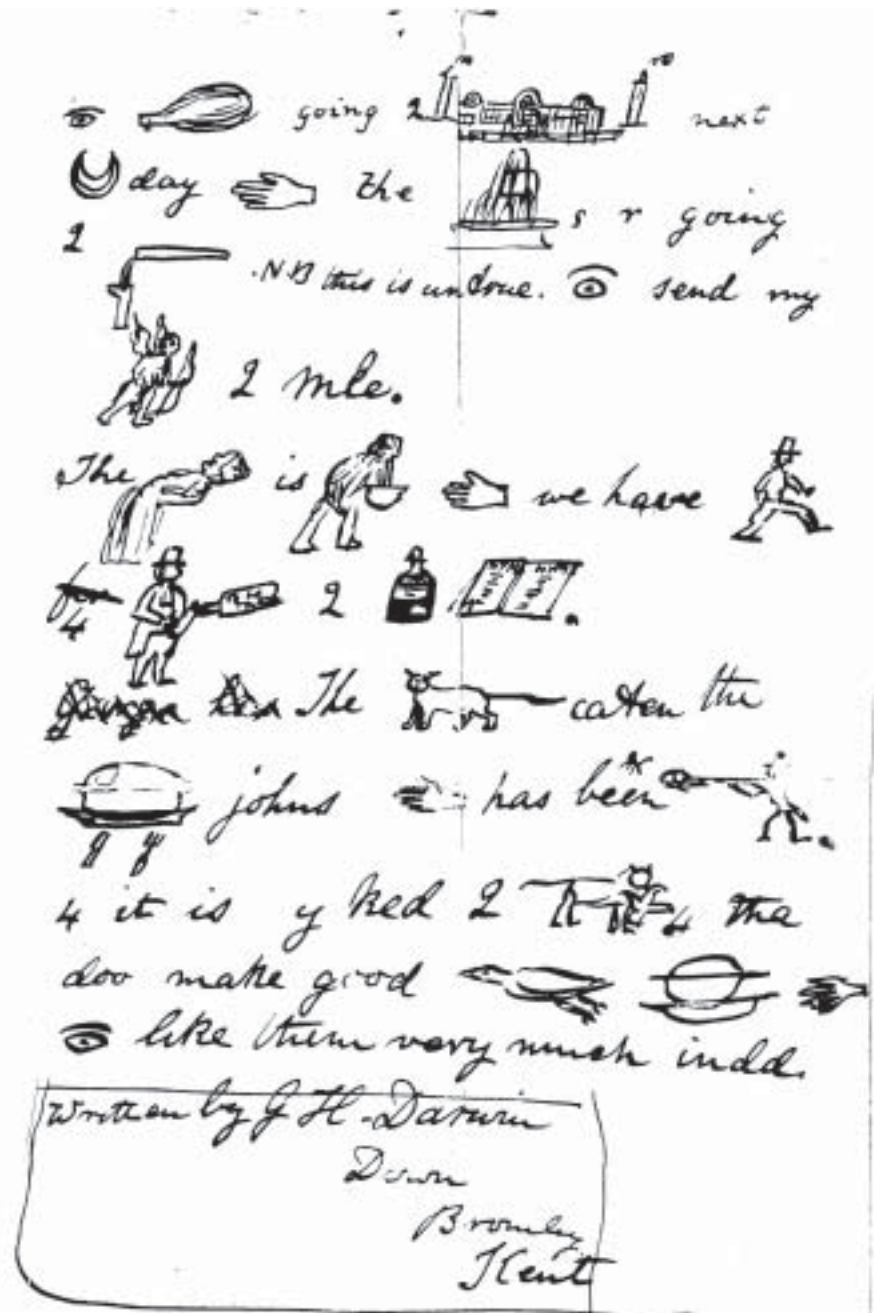 going 2 next
day the s r going
2 .NB this is untrue. send my
2 mle.
The is we have
4 2 .
The eaten the
johns has been
4 it is y ked 2 4 the
doo make good
like them very much indd.
Written by G H. Darwin
Down
Bromley
Kent